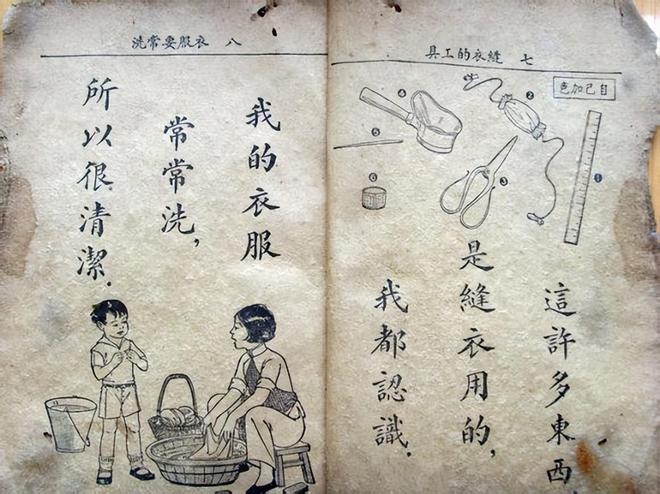 七 縫衣的工具
自己加色
❶
❷
❸
❹
❺
❻
這許多東西
是縫衣用的,
我都認識.
八 衣服要常洗
我的衣服
常常洗,
所以很清潔.